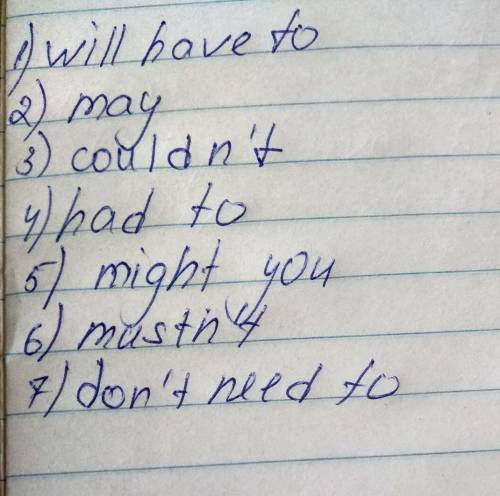 1) will have to
2) may
3) couldn't
4) had to
5) might you
6) mustn't
7) don't need to